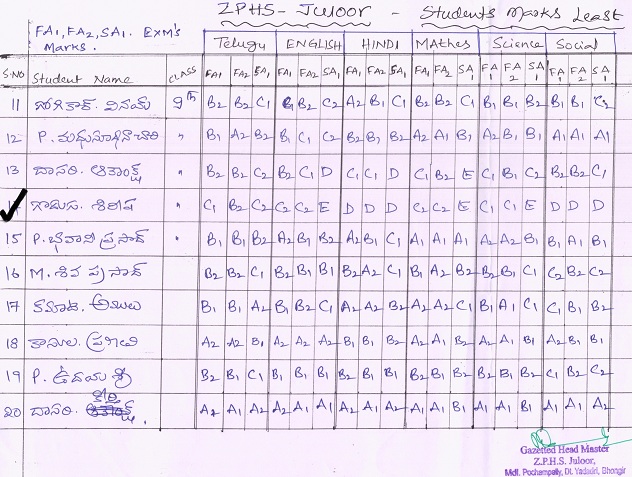 ZPHS - Juloor - Students Marks Least
FA1, FA2, SA1. EXM'S
Marks.
Telugu ENGLISH HINDI MATHes Science Social
S.NO Student Name CLASS FA1 FA2 SA1 FA1 FA2 SA1 FA1 FA2 SA1 FA1 FA2 SA1 FA1 FA2 SA1 FA1 FA2 SA1
11 వినయ్ 9th B2 B2 C1 B2 B2 C2 A2 B1 C1 B2 B2 C1 B1 B1 B2 B1 B1 C2
12 P. మధుసూధనాచారి " B1 A2 B2 B1 C1 C2 B2 B1 B2 A2 A1 B1 A2 B1 B1 A1 A1 A1
13 దాసరి. " B2 B2 C2 B2 C1 D C1 C1 D C1 B2 E C1 B1 C2 B2 B2 C1
14 శిరీష " C1 B2 C2 C2 C2 E D D D C2 C2 E C1 C1 E D D D
15 P. భవాని ప్రసాద్ " B1 B1 B2 A2 B1 B2 A2 B1 C1 A1 A1 A1 A2 A2 B1 B1 A1 B1
16 M. శివ ప్రసాద్ B2 B2 C1 B2 B1 B1 B2 A2 C1 B1 A2 B2 B2 B1 C1 C2 B2 C2
17 B1 B1 A2 B1 B2 C1 A2 A2 B2 A2 A2 C1 B1 A1 C1 C1 B2 B2
18 A2 A2 B1 A2 A2 A2 B1 B1 B2 A2 A1 B2 A2 A1 B1 A2 B1 B1
19 P. ఉదయ శ్రీ B2 B1 C1 B1 B1 B1 B2 B1 B1 B2 B1 B2 B2 B1 B2 C1 B2 C2
20 దాసరి. A2 A1 A2 A2 A1 A1 A2 A1 A2 A1 A1 B1 A1 A1 B1 A1 A1 A2
Gazetted Head Master
Z.P.H.S. Juloor,
Mdl. Pochampally, Dt. Yadadri, Bhongir